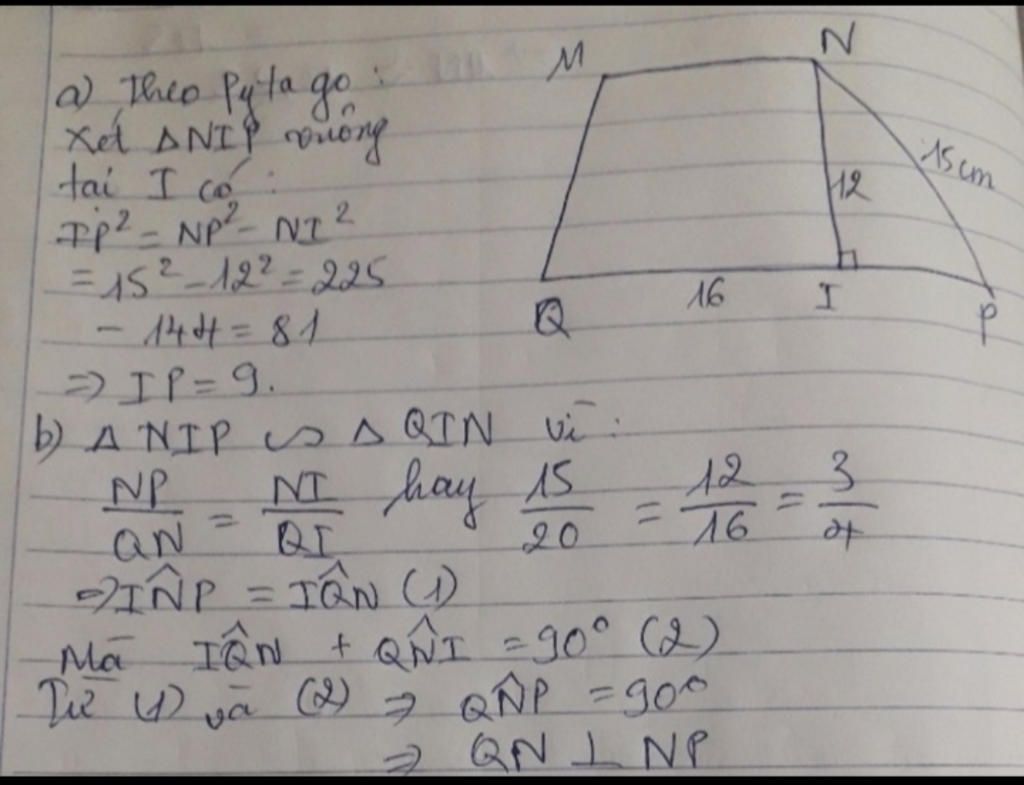 a) Theo Pytago :
Xét △NIP vuông
tại I có :
IP² = NP² - NI²
= 15² - 12² = 225
- 144 = 81
⇒ IP = 9.
b) △ NIP ∽ △ QIN vì :
NP/QN = NI/QI hay 15/20 = 12/16 = 3/4
⇒ IN̂P = IQ̂N (1)
Mà IQ̂N + QN̂I = 90° (2)
Từ (1) và (2) ⇒ QN̂P = 90°
⇒ QN ⊥ NP
M
N
15cm
12
Q
16
I
P